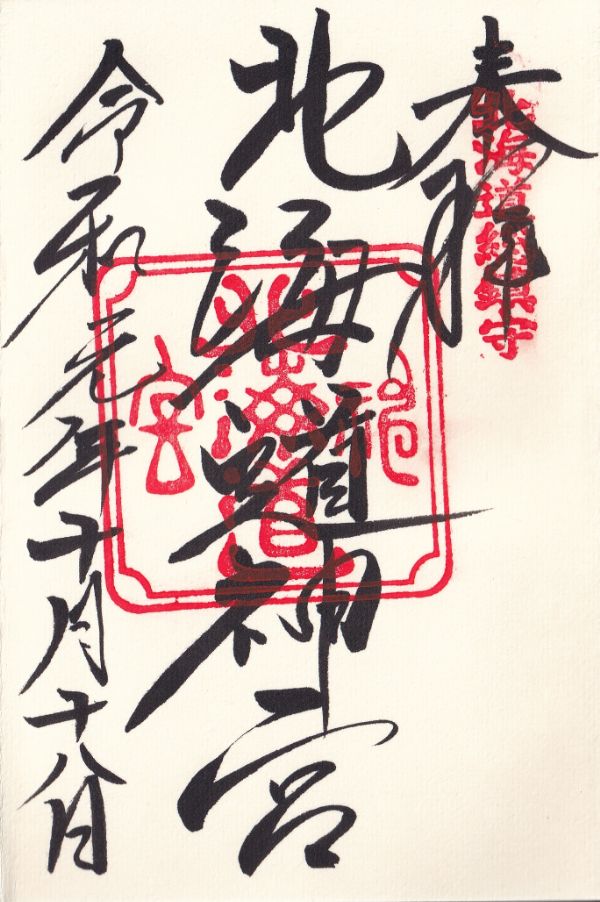 奉拝
北海道総鎮守
北海道神宮
令和元年十月十八日